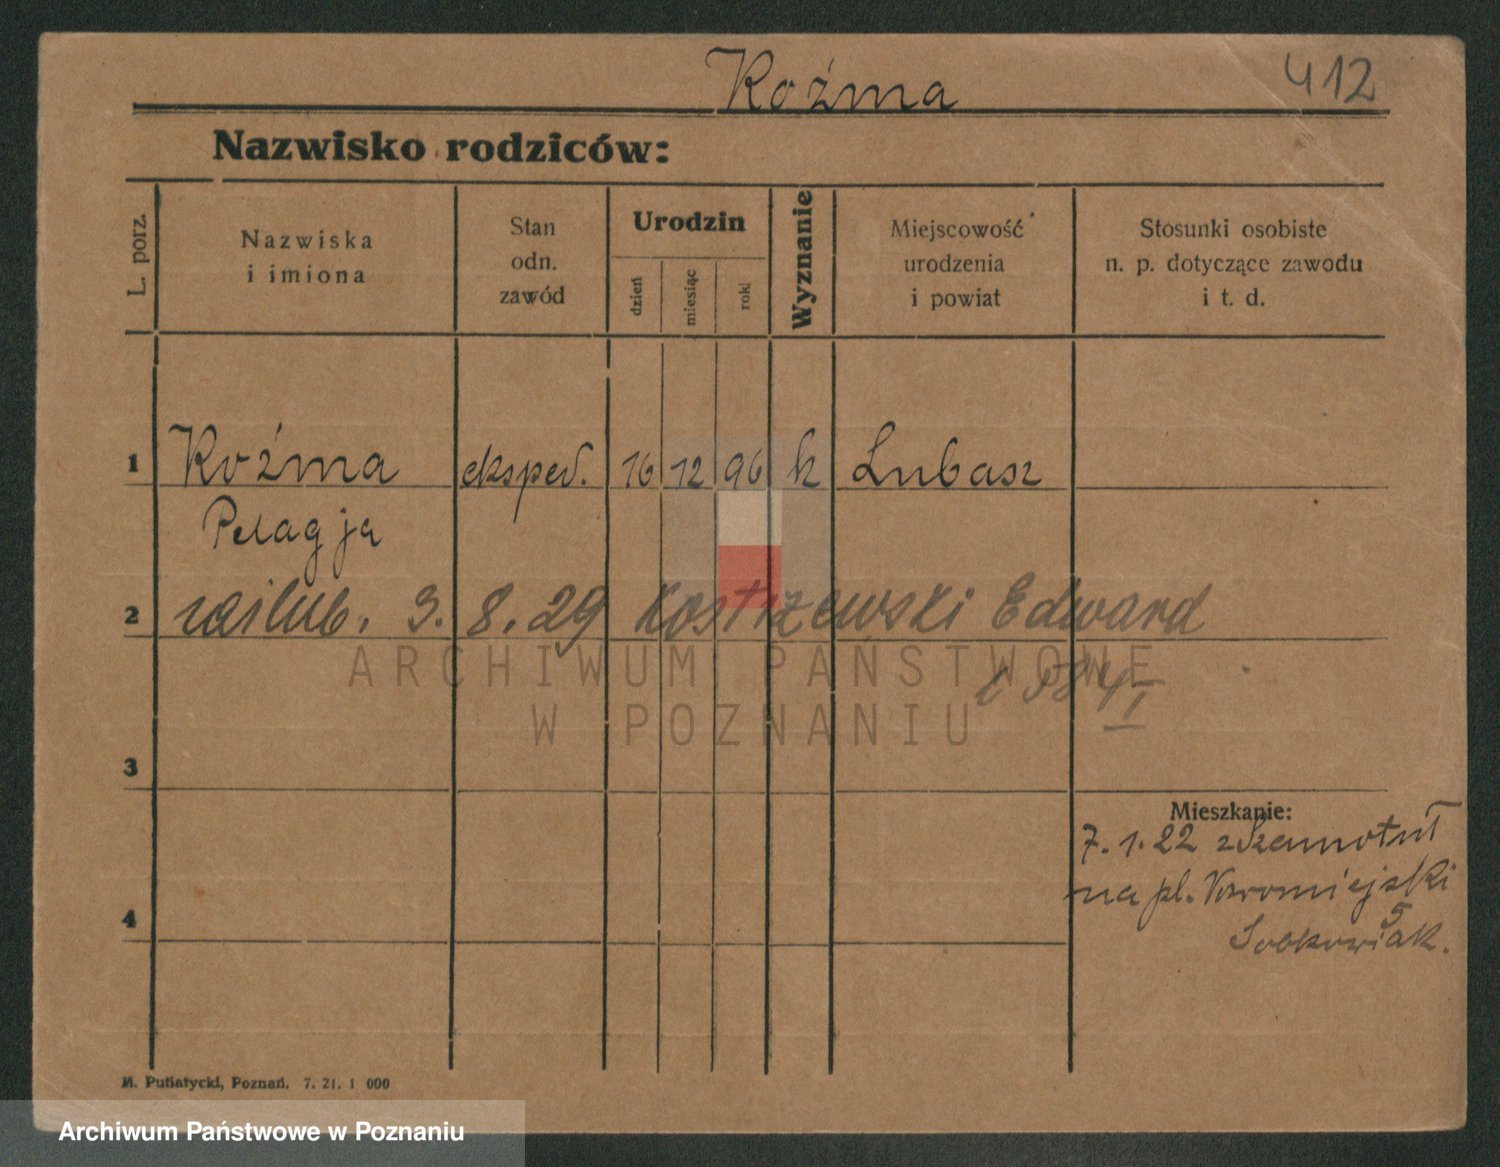 Koźma
412
Nazwisko rodziców:
L. porz.
Nazwiska
i imiona
Stan
odn.
zawód
Urodzin
dzień
miesiąc
rok
Wyznanie
Miejscowość
urodzenia
i powiat
Stosunki osobiste
n. p. dotyczące zawodu
i t. d.
1 Koźma eksped. 16 12 96 k Lubasz
Pelagja
2 zaślub. 3. 8. 29 Kostrzewski Edward
ARCHIWUM PAŃSTWOWE
W POZNANIU
3
Mieszkanie:
7. 1. 22 z Szamotuł
na pl. Nowomiejski
5
Sobkowiak.
4
M. Putiatycki, Poznań. 7. 21. 1 000
Archiwum Państwowe w Poznaniu